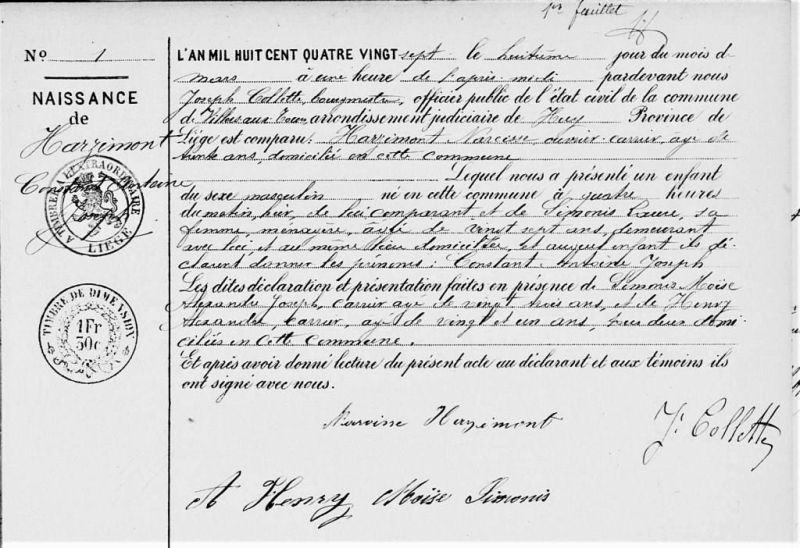 1er feuillet
No 1
NAISSANCE
de
Harzimont
Constant Antoine
Joseph
A TIMBRE A L'EXTRAORDINAIRE
LIEGE
TIMBRE DE DIMENSION
1 Fr
30c
L'AN MIL HUIT CENT QUATRE VINGT sept le huitième jour du mois d
mars à une heure de l'après midi pardevant nous
Joseph Collette, bourgmestre, officier public de l'état civil de la commune
d arrondissement judiciaire de Huy Province de
Liège est comparu: Harzimont Narcisse, ouvrier carrier, agé de
trente ans, domicilié en cette commune
Lequel nous a présenté un enfant
du sexe masculin né en cette commune à quatre heures
du matin, hier, de lui comparant et de Simonis, sa
femme, ménagère, agée de vingt sept ans, demeurant
avec lui et au même lieu domiciliée, et auquel enfant ils dé-
clarent donner les prénoms: Constant Antoine Joseph
Les dites déclaration et présentation faites en présence de Simonis Moïse
Alexandre Joseph, carrier agé de vingt trois ans, et de Henry
Alexandre, carrier, agé de vingt et un ans, tous deux domi-
ciliés en cette commune.
Et après avoir donné lecture du présent acte au déclarant et aux témoins ils
ont signé avec nous.
Harzimont
J. Collette
A Henry Moïse Simonis